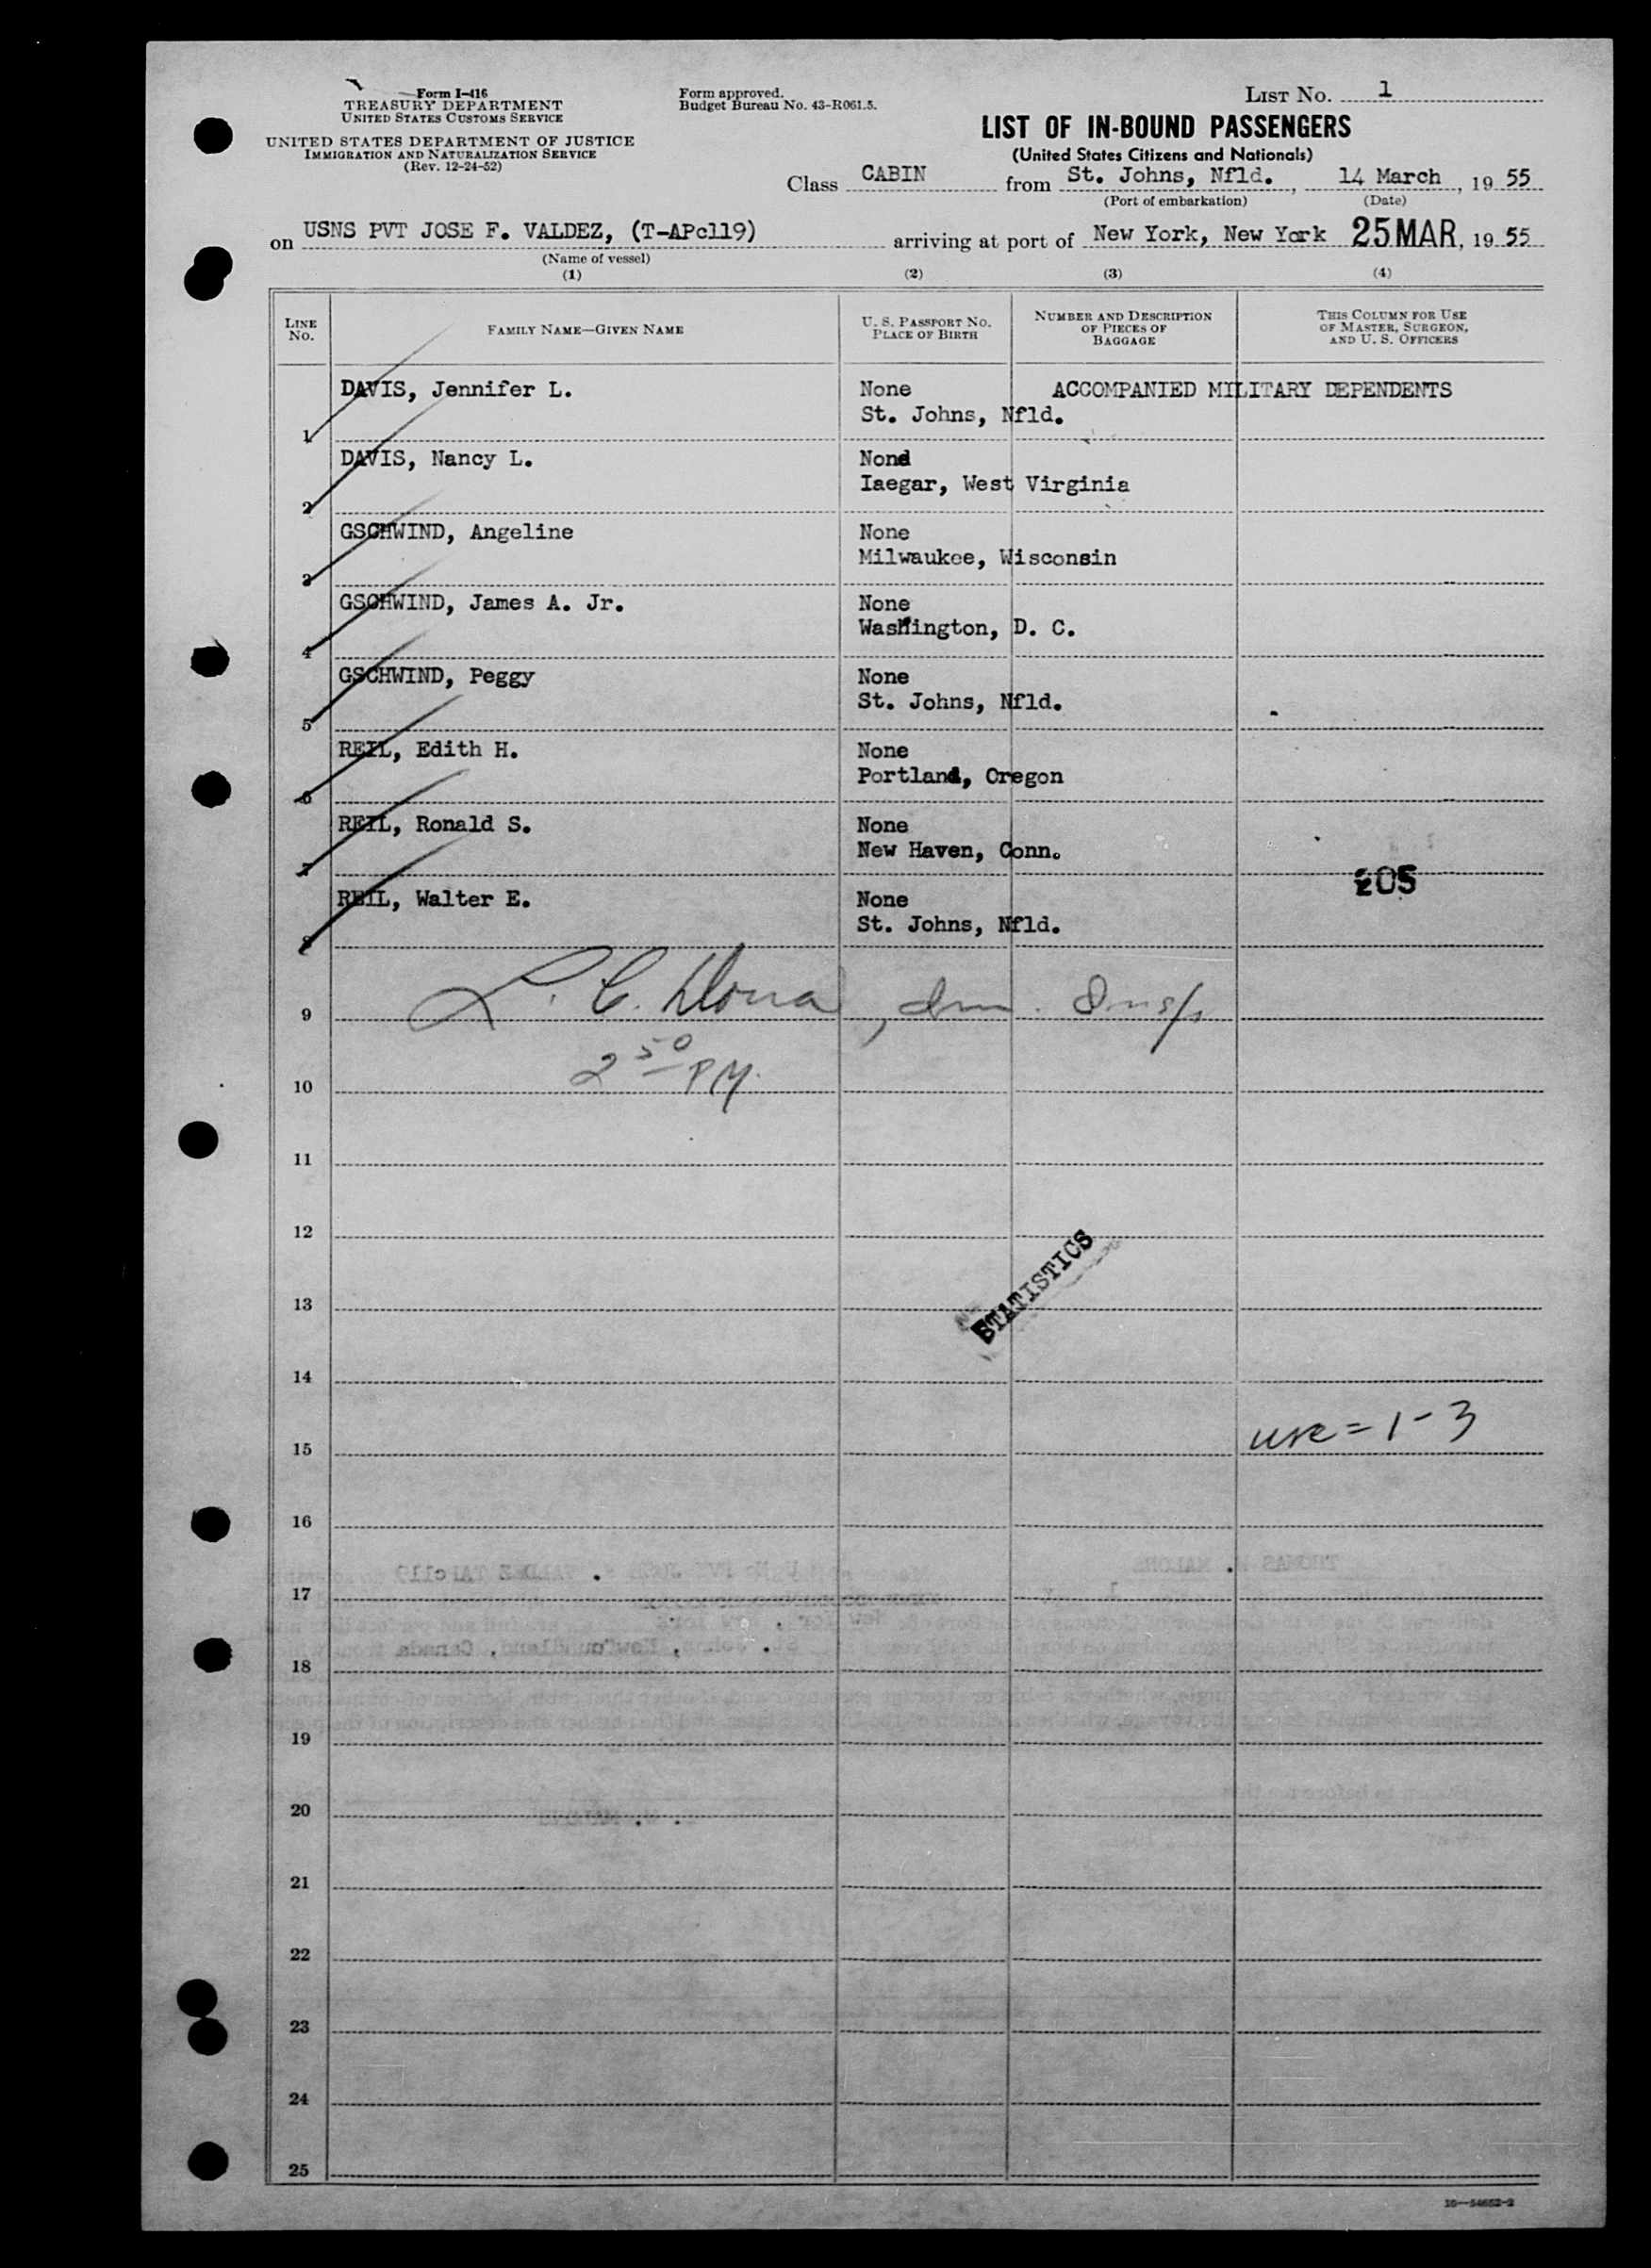 Form I-416
TREASURY DEPARTMENT
UNITED STATES CUSTOMS SERVICE
UNITED STATES DEPARTMENT OF JUSTICE
IMMIGRATION AND NATURALIZATION SERVICE
(Rev. 12-24-52)
Form approved.
Budget Bureau No. 43-R061.5.
LIST NO. 1
LIST OF IN-BOUND PASSENGERS
(United States Citizens and Nationals)
Class CABIN from St. Johns, Nfld., 14 March, 19 55
(Port of embarkation) (Date)
on USNS PVT JOSE F. VALDEZ, (T-APc119) arriving at port of New York, New York 25 MAR, 19 55
(Name of vessel)
(1) (2) (3) (4)
LINE NO. FAMILY NAME—GIVEN NAME U. S. PASSPORT NO. PLACE OF BIRTH NUMBER AND DESCRIPTION OF PIECES OF BAGGAGE THIS COLUMN FOR USE OF MASTER, SURGEON, AND U. S. OFFICERS
DAVIS, Jennifer L. None ACCOMPANIED MILITARY DEPENDENTS
1 St. Johns, Nfld.
DAVIS, Nancy L. None
2 Iaegar, West Virginia
GSCHWIND, Angeline None
3 Milwaukee, Wisconsin
GSCHWIND, James A. Jr. None
4 Washington, D. C.
GSCHWIND, Peggy None
5 St. Johns, Nfld.
REIL, Edith H. None
6 Portland, Oregon
REIL, Ronald S. None
7 New Haven, Conn.
205
REIL, Walter E. None
8 St. Johns, Nfld.
9 L. C. , Imm. Insp
10 2 50 PM.
11
12
STATISTICS
13
14
15 usc = 1-3
16
17
18
19
20
21
22
23
24
25